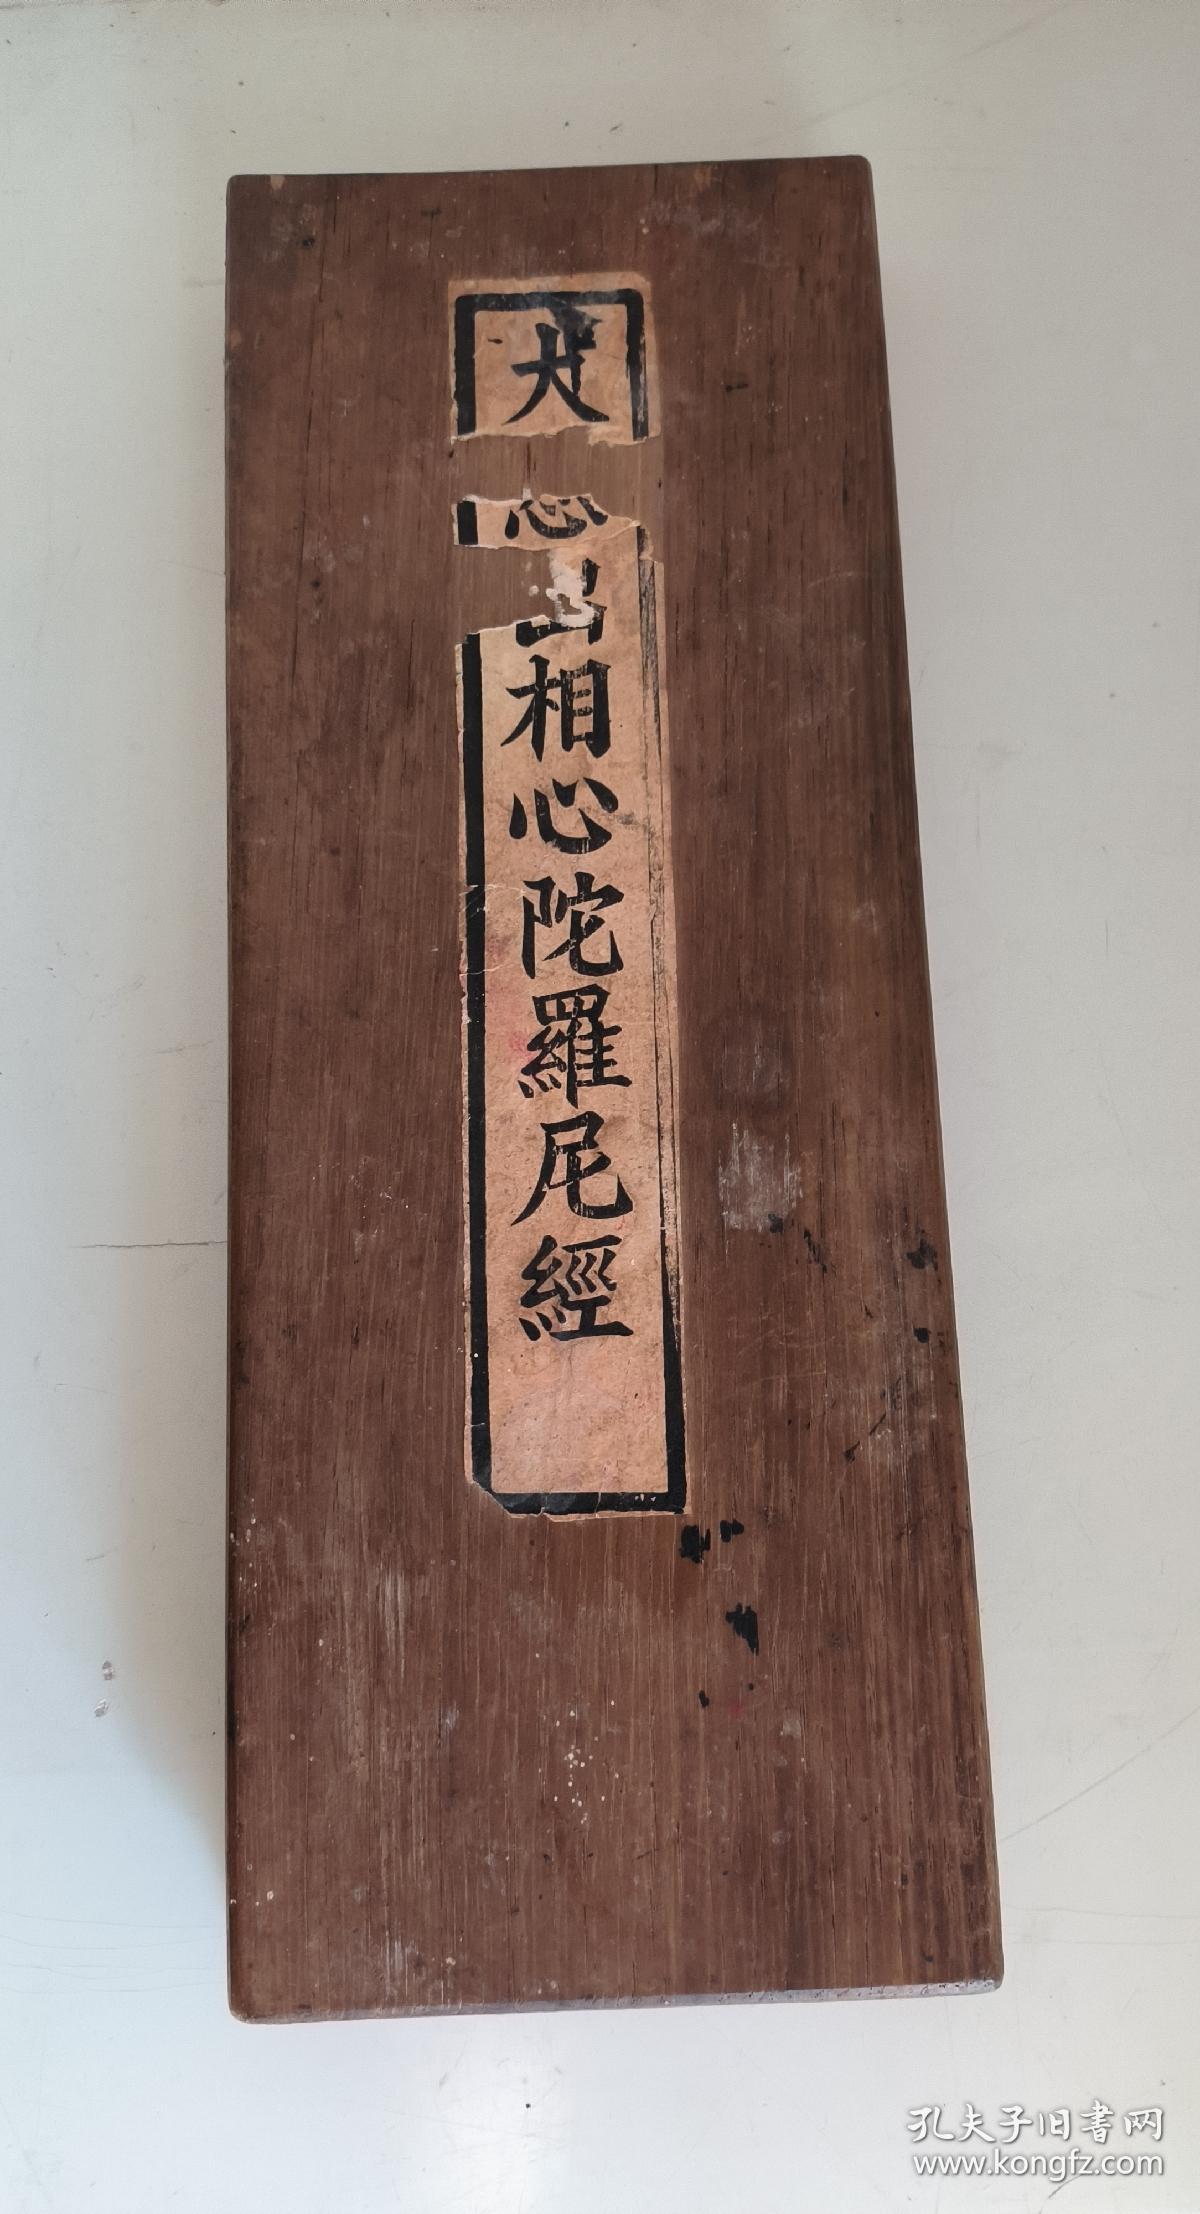 大
出相心陀羅尼經
孔夫子旧書网
www.kongfz.com